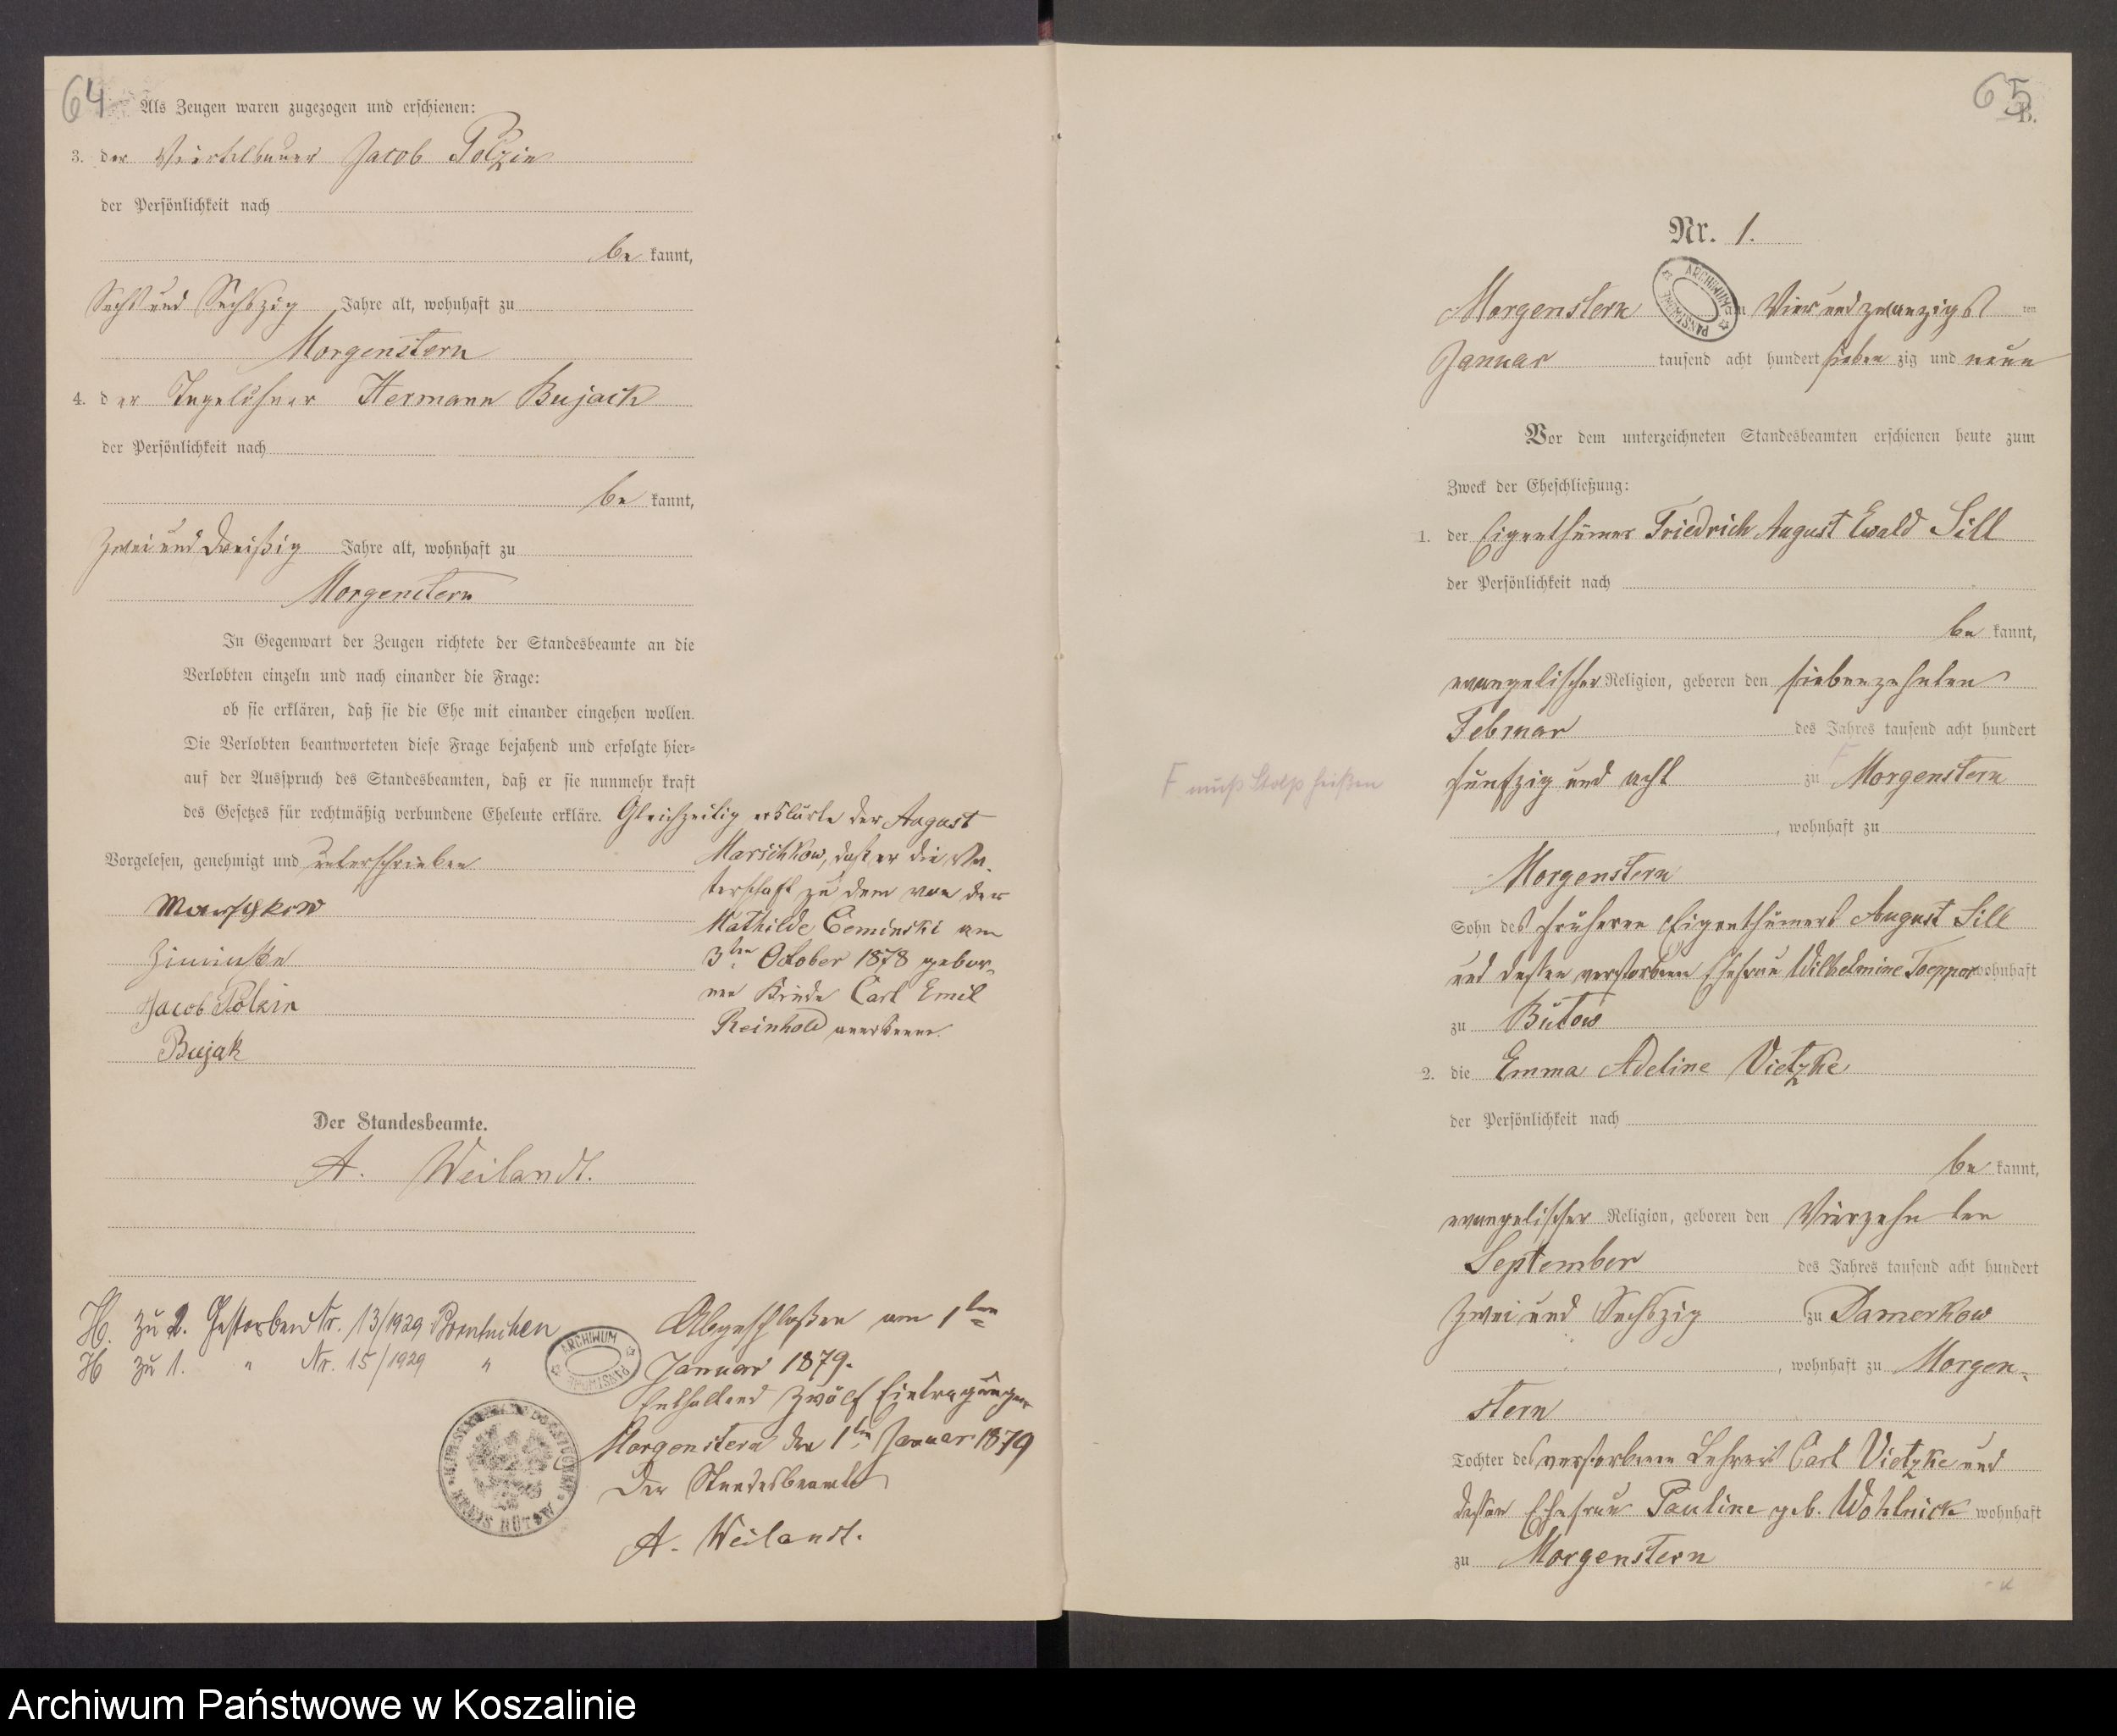 64
Als Zeugen waren zugezogen und erschienen:
3. der Viertelbauer Jacob Polzin
der Persönlichkeit nach
be kannt,
Sechs und Sechszig Jahre alt, wohnhaft zu
Morgenstern
4. der Tagelöhner Hermann Bujack
der Persönlichkeit nach
be kannt,
Zwei und Dreißig Jahre alt, wohnhaft zu
Morgenstern
In Gegenwart der Zeugen richtete der Standesbeamte an die
Verlobten einzeln und nach einander die Frage:
ob sie erklären, daß sie die Ehe mit einander eingehen wollen.
Die Verlobten beantworteten diese Frage bejahend und erfolgte hier=
auf der Ausspruch des Standesbeamten, daß er sie nunmehr kraft
des Gesetzes für rechtmäßig verbundene Eheleute erkläre. Gleichzeitig erklärte der August
Marschkow, daß er die Va-
terschaft zu dem von der
Mathilde Ceminski am
3ten October 1878 gebor-
nen Kinde Carl Emil
Reinhold anerkenne.
Vorgelesen, genehmigt und unterschrieben
Jacob Polzin
Bujak
Der Standesbeamte.
A. Weilandt.
H. zu 2. Gestorben Nr. 13/1929
H zu 1. " Nr. 15/1929 "
ARCHIWUM PAŃSTWOWE
Abgeschloßen am 1ten
Januar 1879.
Enthaltend zwölf Eintragungen
Morgenstern den 1ten Januar 1879
Der Standesbeamte
A. Weilandt.
65
B.
Nr. 1.
ARCHIWUM PAŃSTWOWE
Morgenstern am Vier und zwanzigst ten
Januar tausend acht hundert sieben zig und neun
Vor dem unterzeichneten Standesbeamten erschienen heute zum
Zweck der Eheschließung:
1. der Eigenthümer Friedrich August Ewald Sill
der Persönlichkeit nach
be kannt,
evangelischer Religion, geboren den siebenzehnten
Februar des Jahres tausend acht hundert
fünfzig und acht zu F Morgenstern
F muß Stolp heißen
, wohnhaft zu
Morgenstern
Sohn des früheren Eigenthümers August Sill
und dessen verstorbenen Ehefrau Wilhelmine Toepper wohnhaft
zu Bütow
2. die Emma Adeline Vietzke
der Persönlichkeit nach
be kannt,
evangelischer Religion, geboren den Vierzehn ten
September des Jahres tausend acht hundert
Zwei und Sechszig zu Damerkow
, wohnhaft zu Morgen-
stern
Tochter des verstorbenen Lehrers Carl Vietzke und
dessen Ehefrau Pauline geb. Wohlnick wohnhaft
zu Morgenstern
Archiwum Państwowe w Koszalinie